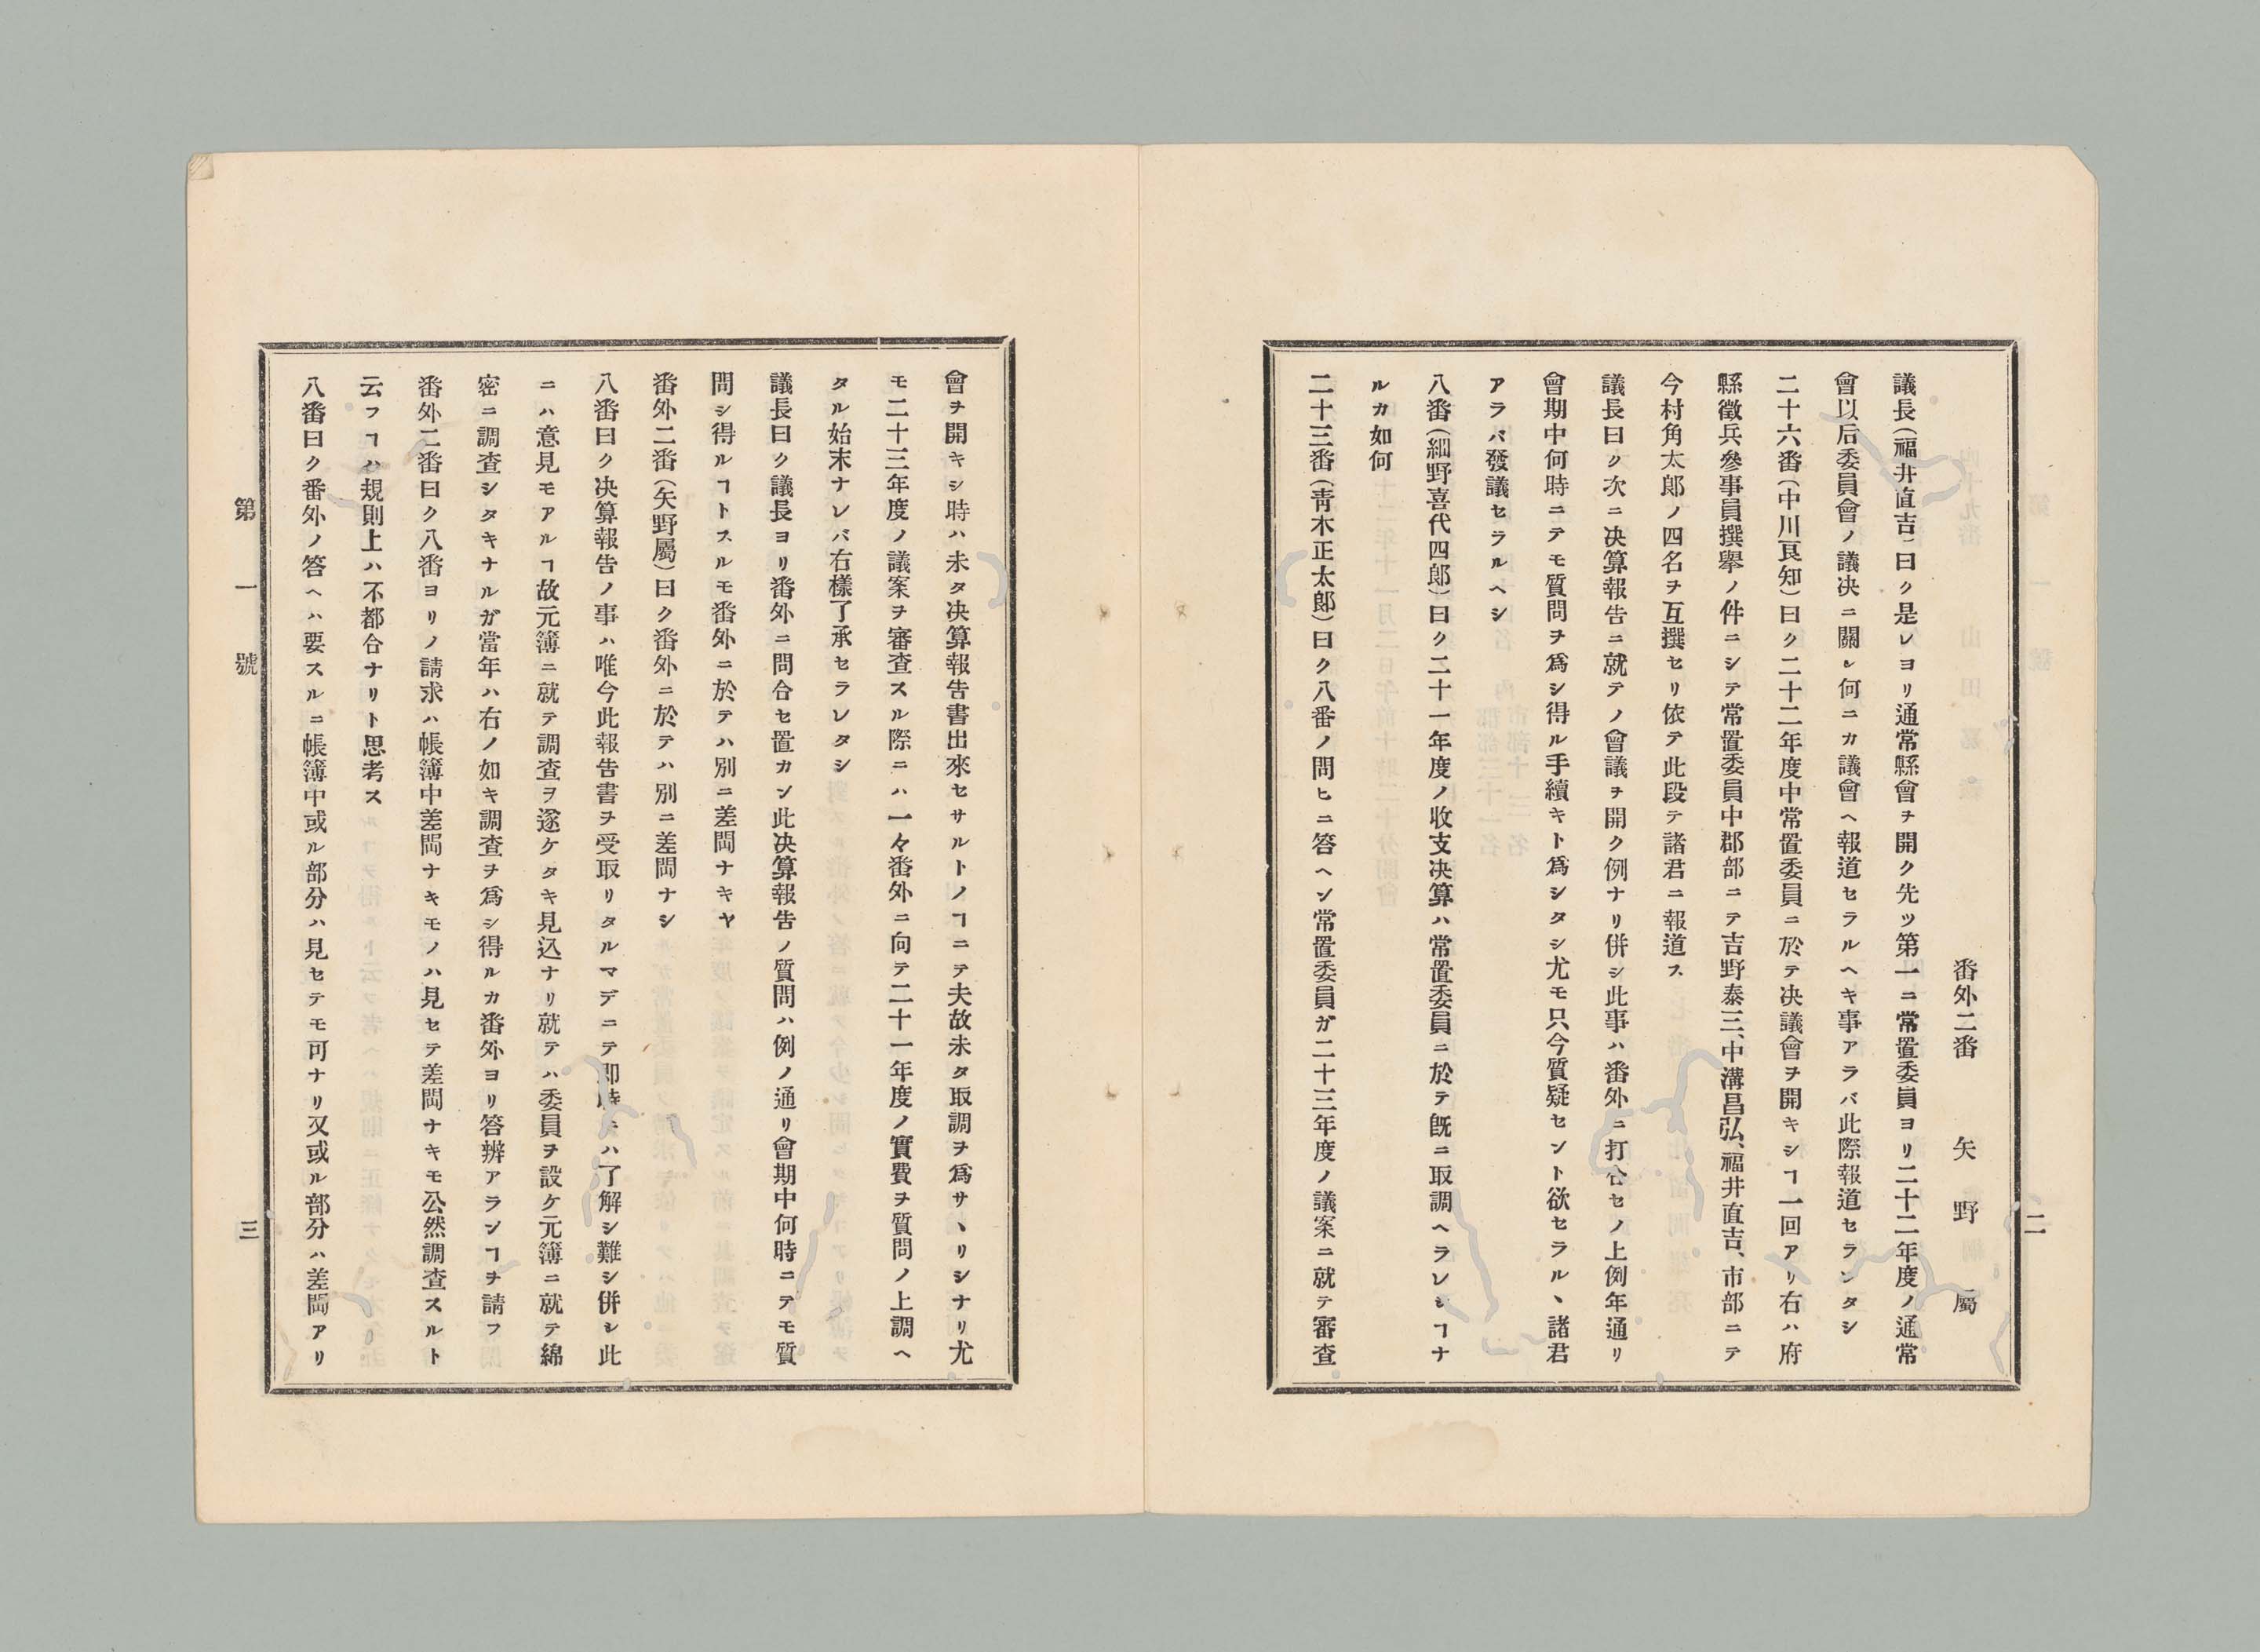 二
番外二番　矢野　屬
議長（福井直吉）曰ク是レヨリ通常縣會ヲ開ク先ツ第一ニ常置委員ヨリ二十二年度ノ通常
會以后委員會ノ議决ニ關シ何ニカ議會ヘ報道セラルヘキ事アラバ此際報道セランタシ
二十六番（中川良知）曰ク二十二年度中常置委員ニ於テ决議會ヲ開キシヿ一回アリ右ハ府
縣徵兵參事員撰擧ノ件ニシテ常置委員中郡部ニテ吉野泰三、中溝昌弘、福井直吉、市部ニテ
今村角太郎ノ四名ヲ互撰セリ依テ此段テ諸君ニ報道ス
議長曰ク次ニ决算報告ニ就テノ會議ヲ開ク例ナリ併シ此事ハ番外ニ打合セノ上例年通リ
會期中何時ニテモ質問ヲ爲シ得ル手續キト爲シタシ尤モ只今質疑セント欲セラル、諸君
アラバ發議セラルヘシ
八番（細野喜代四郎）曰ク二十一年度ノ收支决算ハ常置委員ニ於テ既ニ取調ヘラレシヿナ
ルカ如何
二十三番（靑木正太郎）曰ク八番ノ問ヒニ答ヘン常置委員ガ二十三年度ノ議案ニ就テ審査
會ヲ開キシ時ハ未タ决算報告書出來セサルトノヿニテ夫故未タ取調ヲ爲サヽリシナリ尤
モ二十三年度ノ議案ヲ審査スル際ニハ一々番外ニ向テ二十一年度ノ實費ヲ質問ノ上調ヘ
タル始末ナレバ右樣了承セラレタシ
議長曰ク議長ヨリ番外ニ問合セ置カン此决算報告ノ質問ハ例ノ通リ會期中何時ニテモ質
問シ得ルヿトスルモ番外ニ於テハ別ニ差閊ナキヤ
番外二番（矢野屬）曰ク番外ニ於テハ別ニ差閊ナシ
八番曰ク决算報告ノ事ハ唯今此報告書ヲ受取リタルマデニテ即時ニハ了解シ難シ併シ此
ニハ意見モアルヿ故元簿ニ就テ調査ヲ遂ケタキ見込ナリ就テハ委員ヲ設ケ元簿ニ就テ綿
密ニ調査シタキナルガ當年ハ右ノ如キ調査ヲ爲シ得ルカ番外ヨリ答辨アランヿヲ請フ
番外二番曰ク八番ヨリノ請求ハ帳簿中差閊ナキモノハ見セテ差閊ナキモ公然調査スルト
云フヿハ規則上ハ不都合ナリト思考ス
八番曰ク番外ノ答ヘハ要スルニ帳簿中或ル部分ハ見セテモ可ナリ又或ル部分ハ差閊アリ
第一號
三